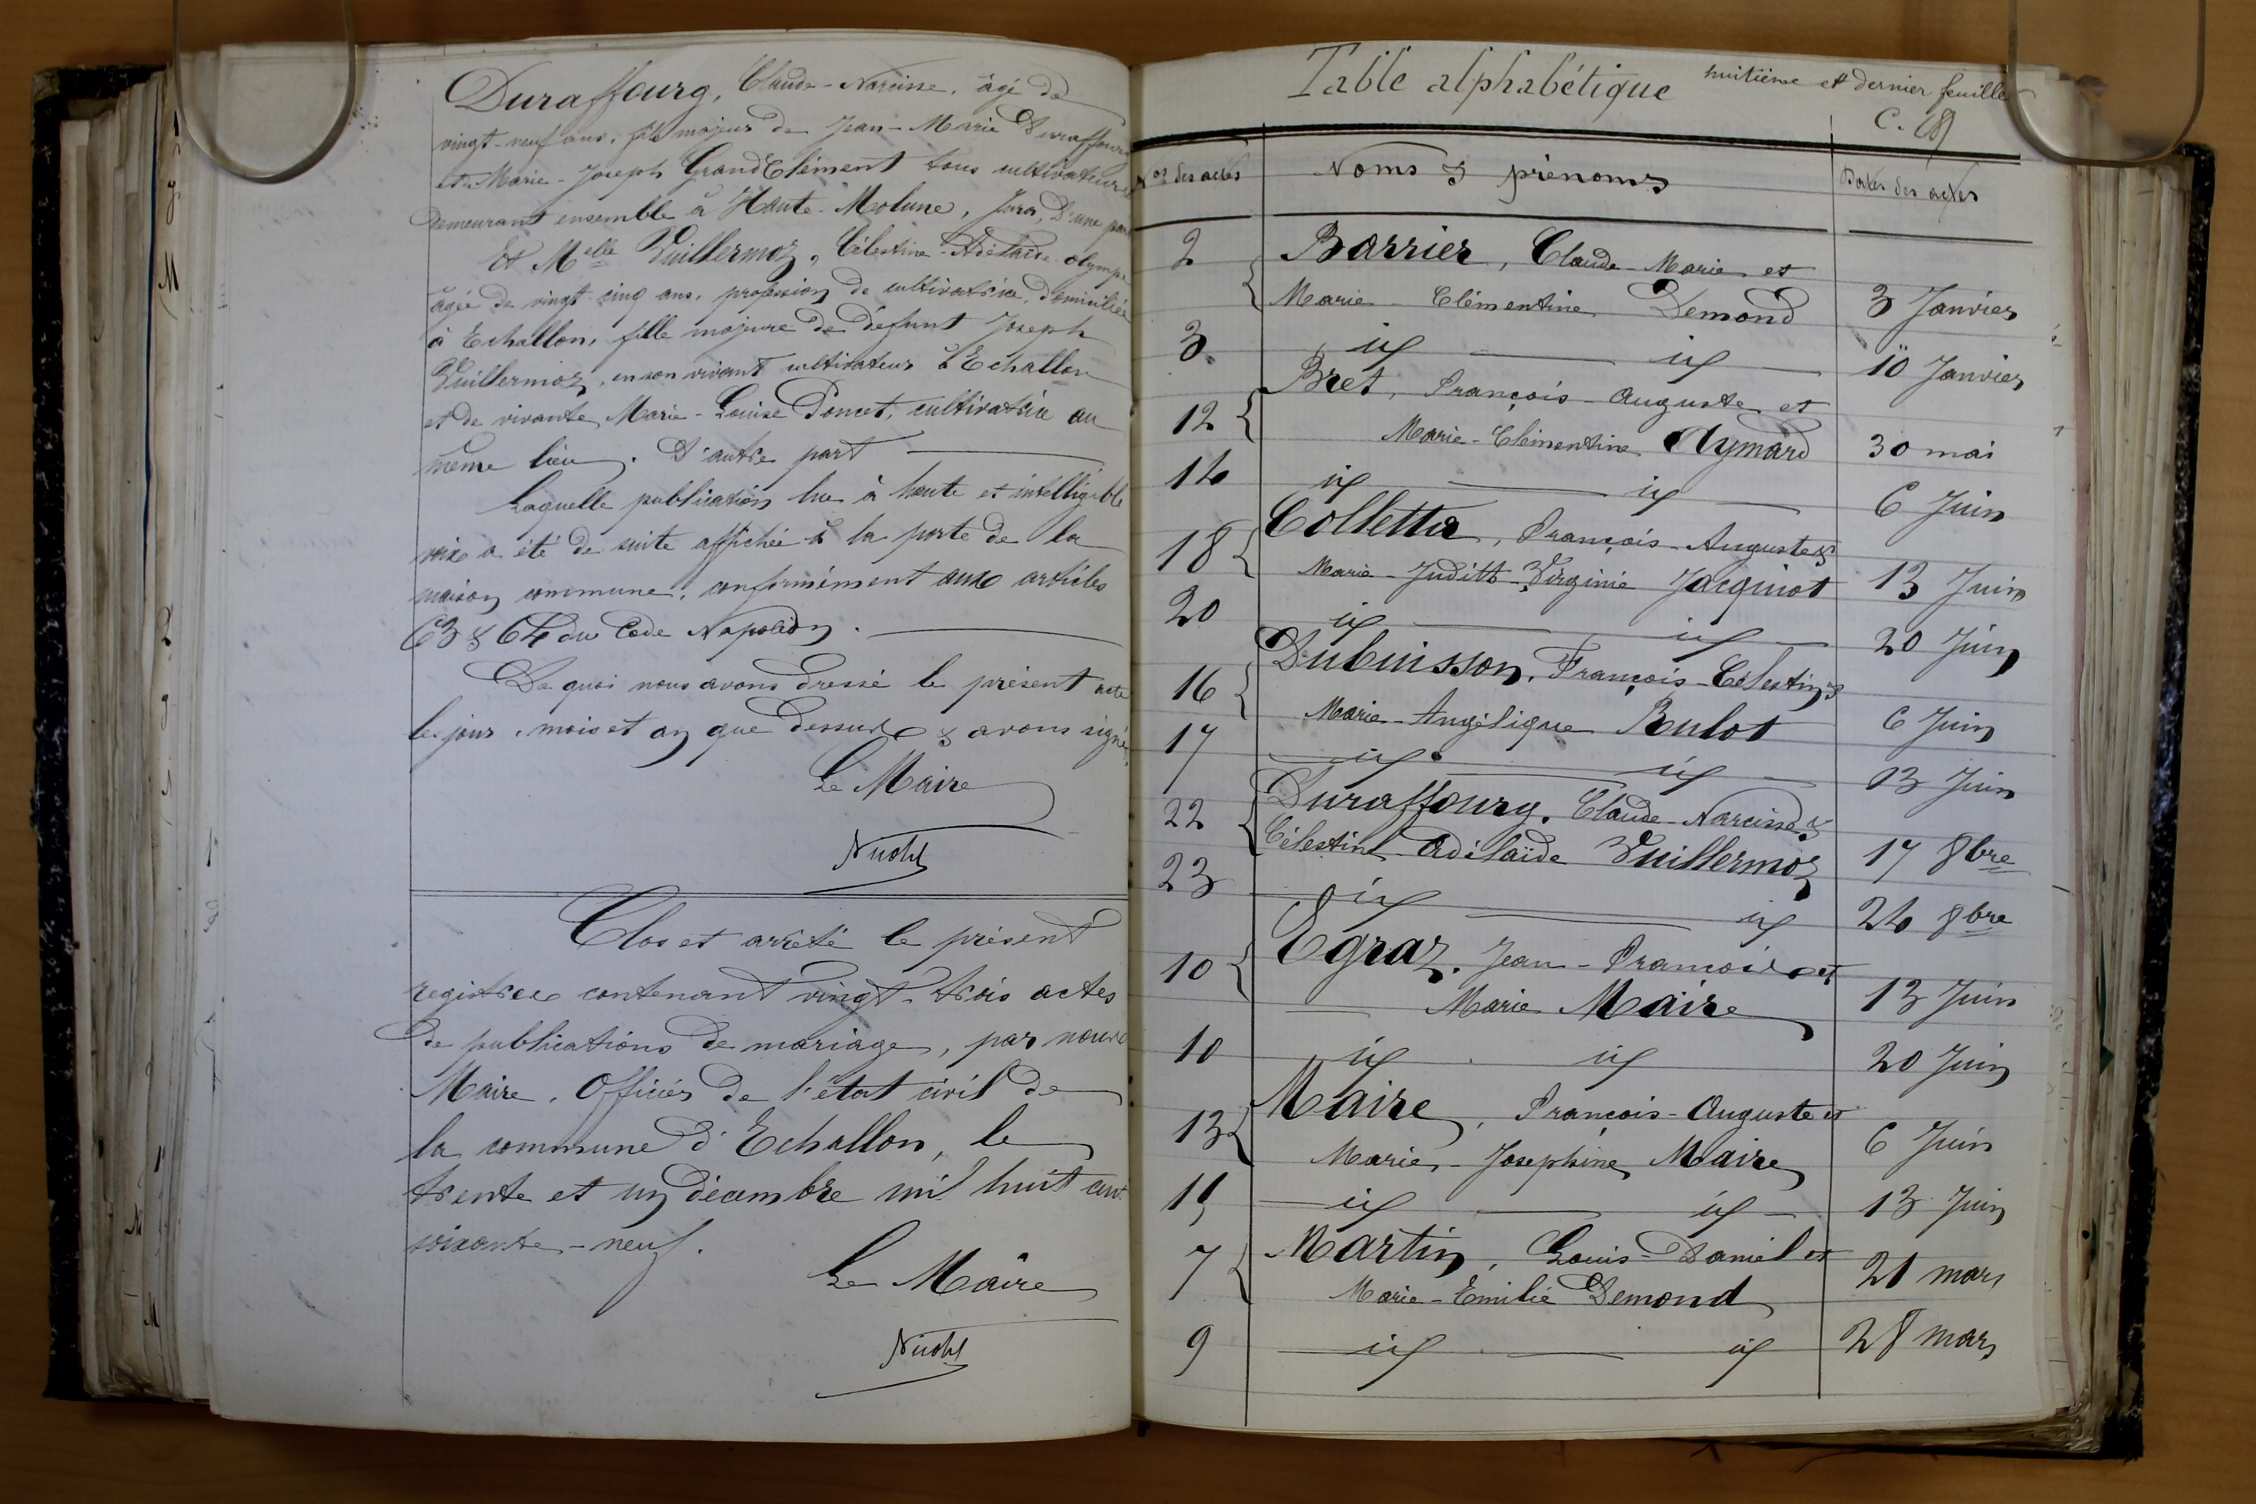 Duraffourg, Claude-Narcisse, âgé de
vingt-neuf ans, fils majeur de Jean-Marie Duraffourg
et Marie-Joseph GrandClément tous cultivateurs
demeurant ensemble à Haute-Molune, Jura, D'une part
Et Melle Vuillermoz, Célestine-Adélaïde olympe
âgée de vingt-cinq ans, profession de cultivatrice, domiciliée
à Echallon, fille majeure de défunt Joseph
Vuillermoz, en son vivant cultivateur à Echallon
et de vivante Marie-Louise Poncet, cultivatrice au
même lieu. D'autre part
Laquelle publication lue à haute et intelligible
voix a été de suite affichée à la porte de la
maison commune, conformément aux articles
63 & 64 du Code Napoléon.
De quoi nous avons dressé le présent acte
les jour, mois et an que dessus & avons signé.
Le Maire
Clos et arrêté le présent
registre contenant vingt-trois actes
de publications de mariage, par nous
Maire, Officier de l'état civil de
la commune d'Echallon, le
trente et un décembre mil huit cent
soixante-neuf.
Le Maire
Table alphabétique huitième et dernier feuillet
Nos des actes Noms & prénoms Dates des actes
2 Barrier, Claude-Marie et
Marie-Clémentine Demond 3 Janvier
3. id id 10 Janvier
Bret, François-Auguste et
12 Marie-Clémentine Aymard 30 mai
14 id id 6 Juin
Colletta, François-Auguste &
18 Marie-Judith-Virginie Jacquiot 13 Juin
20 id id 20 Juin
Dubuisson, François-Célestin &
16 Marie-Angélique Bulot 6 Juin
17 id id 13 Juin
22 Duraffourg, Claude-Narcisse &
Célestine-Adélaïde Vuillermoz 17 8bre
23 id id 24 8bre
10 Egraz, Jean-François et
Marie Maire 13 Juin
10 id id 20 Juin
Maire, François-Auguste et
13 Marie-Josephine Maire 6 Juin
15 id id 13 Juin
7 Martin, Louis-Daniel et
Marie-Emilie Demond 21 mars
9 id id 28 mars